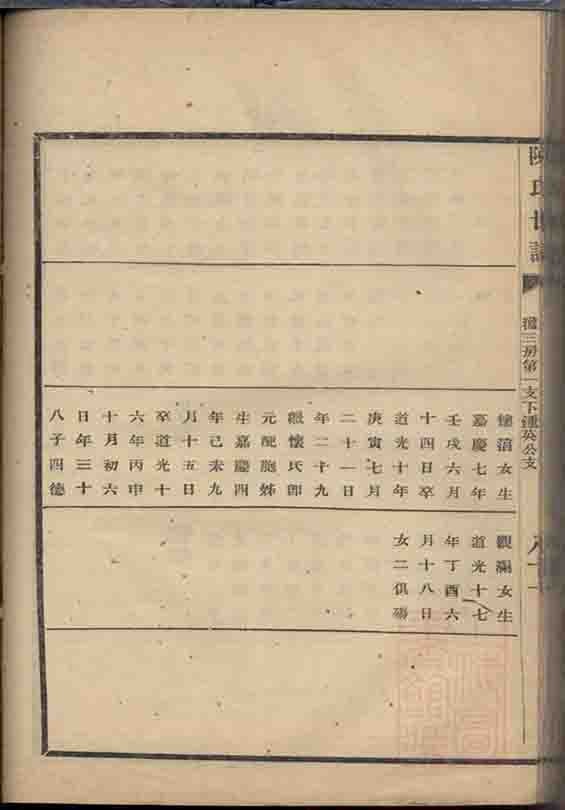 陳氏世譜
三房第一支下鍾英公支
女生
嘉慶七年
壬戌六月
十四日卒
道光十年
庚寅七月
二十一日
年二十九
繼懷氏即
元配胞姊
生嘉慶四
年己未九
月十五日
卒道光十
六年丙申
十月初六
日年三十
八子四德
觀瀾女生
道光十七
年丁酉六
月十八日
女二俱殤